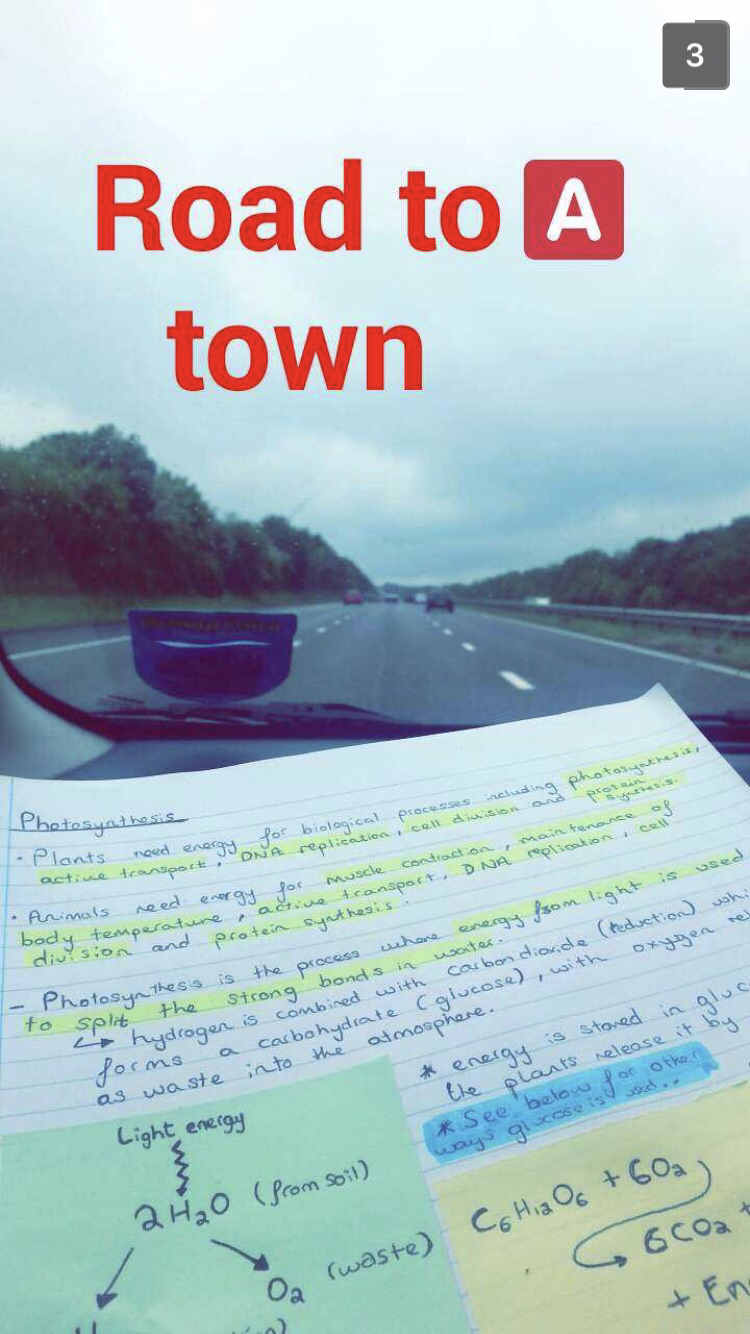 3
Road to 🅰
town
Photosynthesis
• Plants need energy for biological processes including photosynthesis,
active transport, DNA replication, cell division and protein
synthesis.
• Animals need energy for muscle contraction, maintenance of
body temperature, active transport, DNA replication, cell
division and protein synthesis.
– Photosynthesis is the process where energy from light is used
to split the strong bonds in water.
↳ hydrogen is combined with carbon dioxide (reduction) whi
forms a carbohydrate (glucose), with oxygen re
as waste into the atmosphere.
* energy is stored in gluc
the plants release it by
* See below for other
ways glucose is used..
Light energy
2H₂O (from soil)
O₂ (waste)
C₆H₁₂O₆ + 6O₂
→ 6CO₂ +
+ En